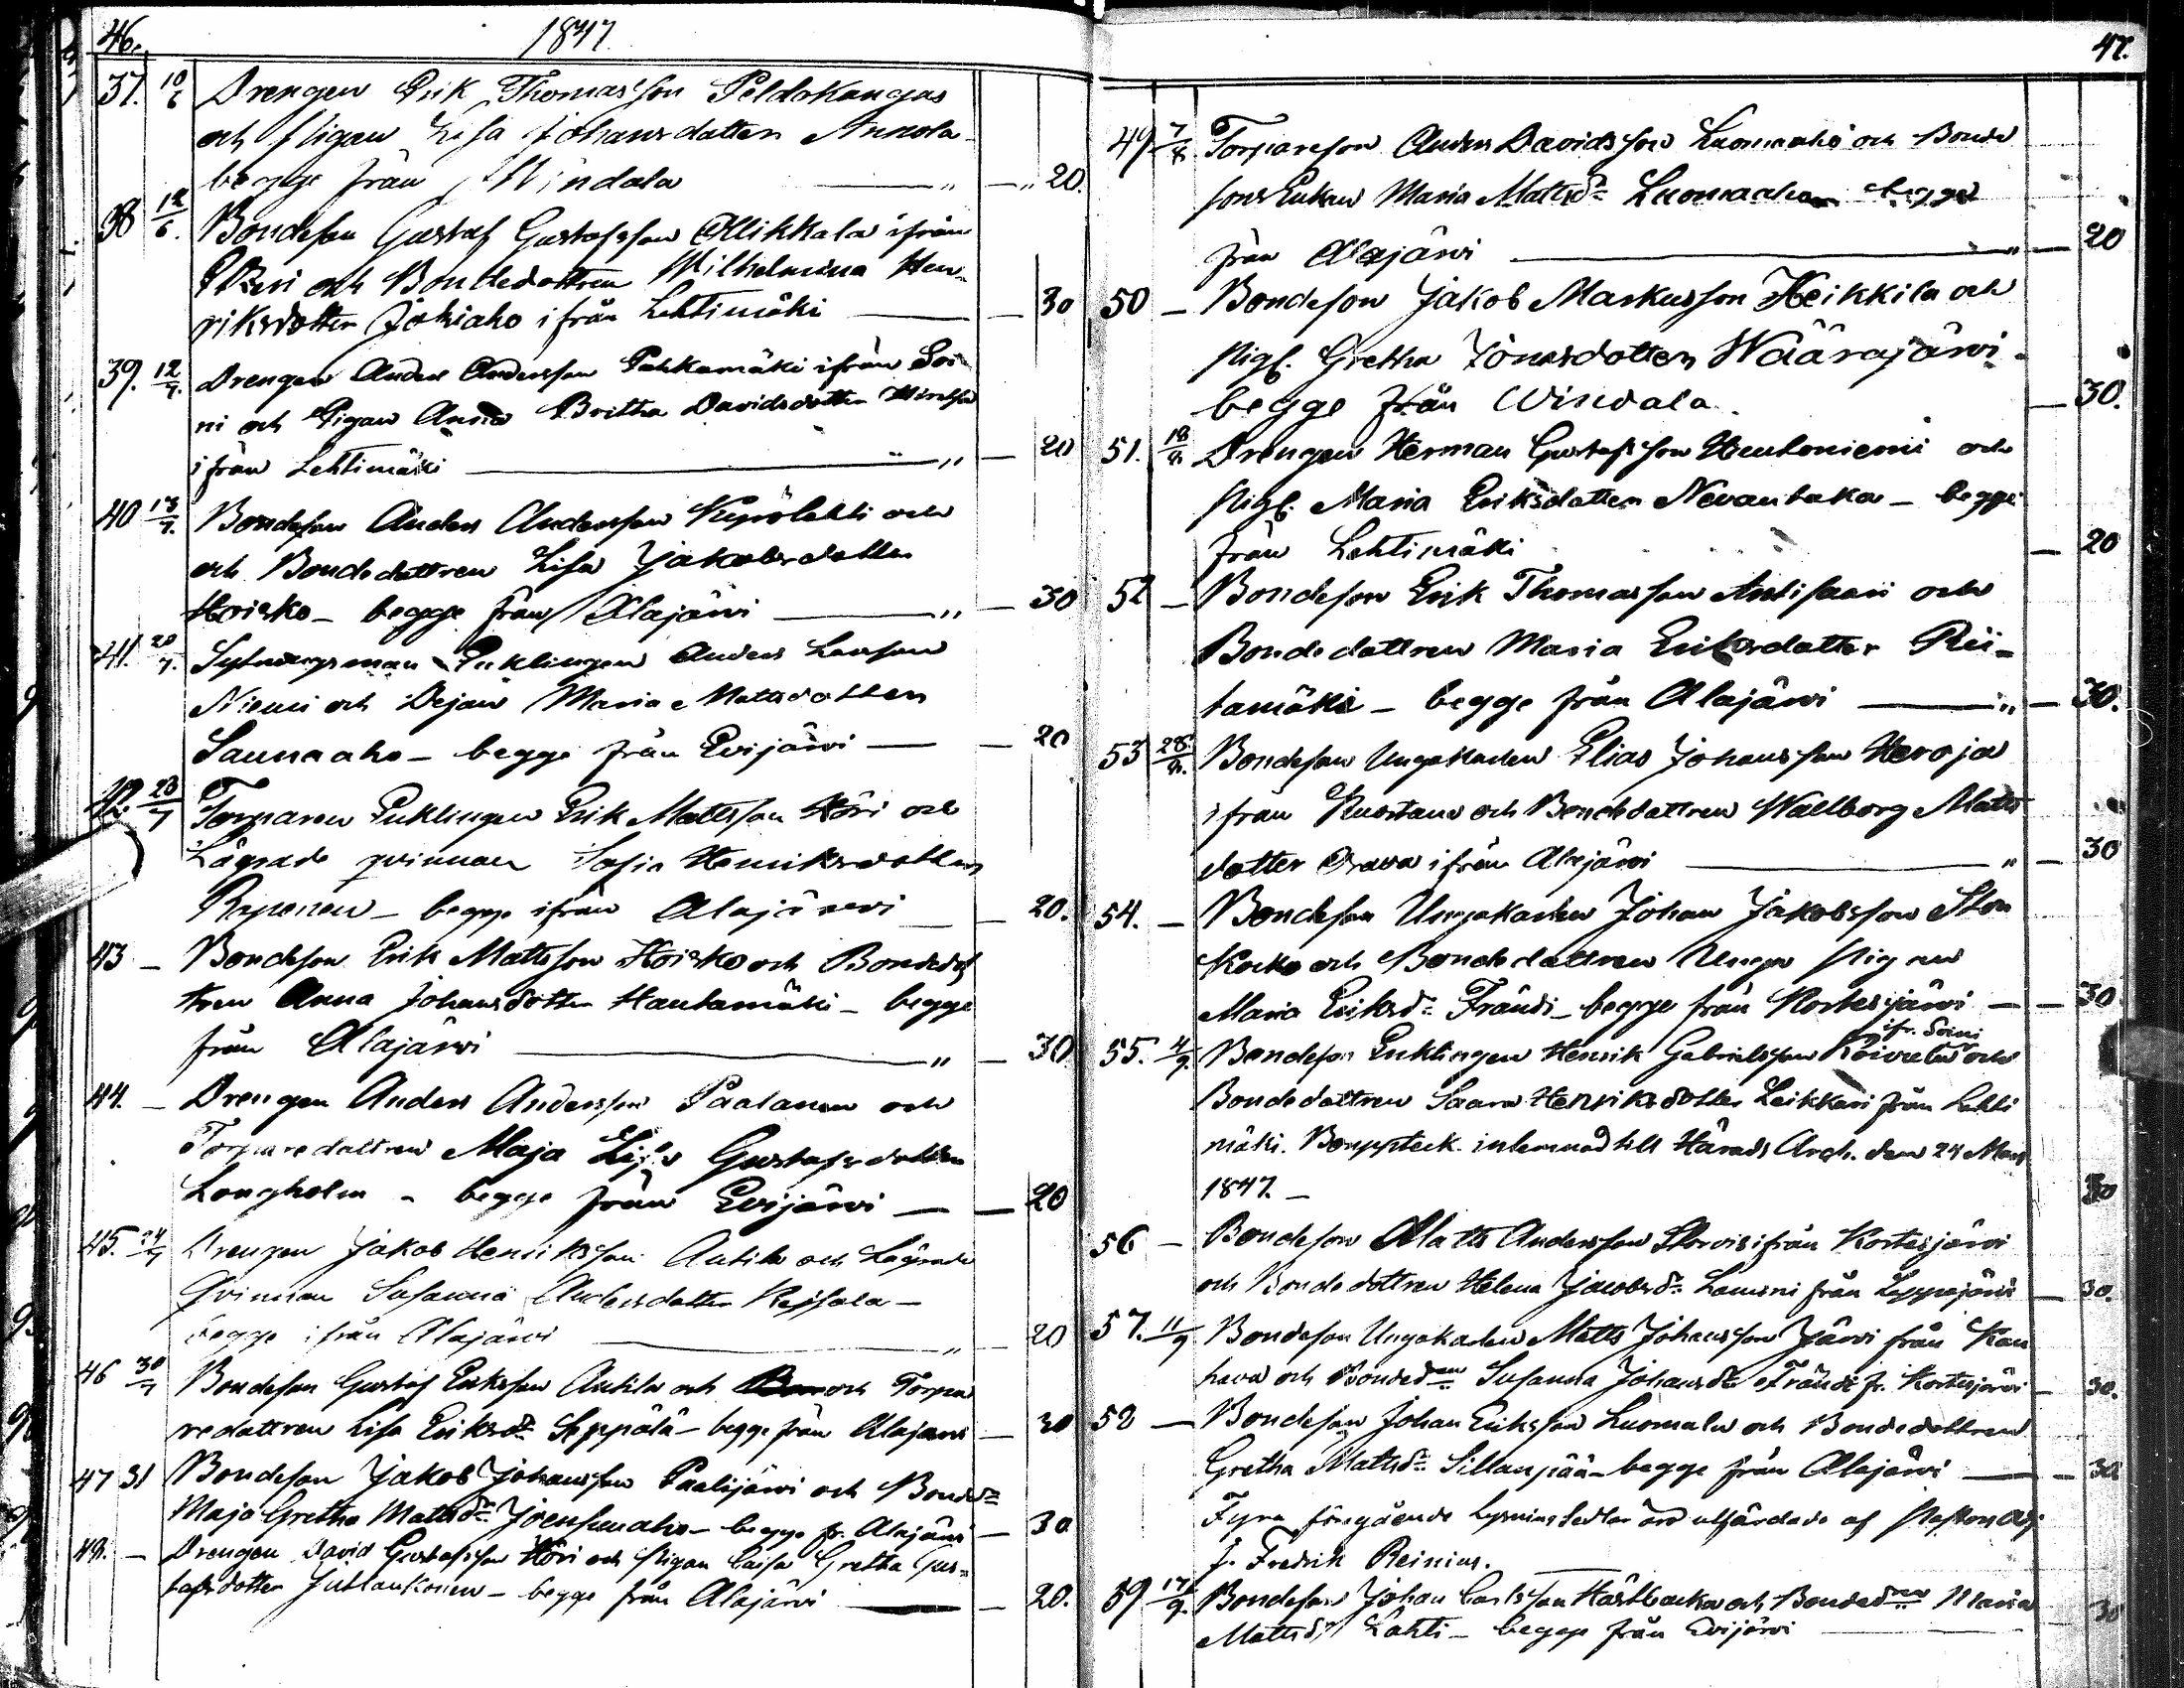 46. 1847.
37. 10/6 Drengen Erik Thomasson Peldokangas
och Pigan Lisa Johansdotter Annola
begge från Windala " 20.
38 12/6. Bondeson Gustaf Gustafsson Ollikkala ifrån
Etzeri och Bondedottren Wilhelmina Hen-
riksdotter Jokiaho ifrån Lehtimäki 30
39. 12/7. Drengen Anders Andersson Pahkamäki ifrån Soi-
ni och Pigan Anna Britha Davidsdotter
ifrån Lehtimäki " 20
40 18/7. Bondeson Anders Andersson Kypölehti och
och Bondedottren Lisa Jakobsdotter
Hoisko – begge från Alajärvi " 30
41. 20/7. Sytningsman Enklingen Anders Larsson
Niemi och Dejan Maria Mattsdotter
Saunaaho – begge från Evijärvi — 20
42. 23/7 Torparen Enklingen Erik Mattsson Höri och
Lägrade qvinnan Sofia Henriksdotter
Raponen – begge ifrån Alajärvi 20.
43 – Bondeson Erik Mattsson Hoisko och Bondedot
tren Anna Johansdotter Hautamäki – begge
från Alajärvi " 30
44. – Drengen Anders Andersson Paalanen och
Torparedottren Maja Lisa Gustafsdotter
Longholm – begge från Evijärvi — 20
45. 24/7 Drengen Jakob Henriksson Antila och Lägrade
Qvinnan Susanna Andersdotter Rajsala –
begge ifrån Alajärvi " 20
46 30/7 Bondeson Gustaf Eriksson Antila och och Torpa
redottren Lisa Eriksd: Seppälä – begge från Alajärvi 30
47 31 Bondeson Jakob Johansson Paalijärvi och Bonded:
Maja Gretha Mattsd: Joensuuaho – begge fr. Alajärvi 30
48. – Drengen David Gustafsson Höri och Pigan Caisa Gretha Gus=
tafsdotter Juhlankonen – begge från Alajärvi 20.
47.
49 7/8. Torpareson Anders Davidsson Luomaaho och Bonde
sons Enkan Maria Mattsd: Luomaaho begge
från Alajärvi " 20
50 – Bondeson Jakob Markusson Heikkila och
Pig. Gretha Jönasdotter Wäärajärvi –
begge från Windala. 30.
51. 18/8. Drengen Herman Gustafsson Hautoniemi och
Pig. Maria Eriksdotter Nevantaka – begge
från Lehtimäki 20
52 – Bondeson Erik Thomasson Antisaari och
Bondedottren Maria Eriksdotter Rii-
tamäki – begge från Alajärvi " 30.
53 28/8. Bondeson Ungakarlen Elias Johansson Heroja
ifrån Kuortane och Bondedottren Wallborg Matts
dotter Orava ifrån Alajärvi " 30
54. – Bondeson Ungakarlen Johan Jakobsson Stor
Kocko och Bondedottren Unga Pigan
Maria Eriksd: Frändi – begge från Kortesjärvi — 30
55. 4/9. Bondeson Enklingen Henrik Gabrielsson Koivula ifr. Soini och
Bondedottren Saara Henriksdotter Leikkari från Lehti
mäki. Bouppteck. inlemnad till Härads Arch. den 24 Mars
1847. – 30
56 – Bondeson Matts Andersson Storvis ifrån Kortesjärvi
och Bondedottren Helena Jacobsd: Lameni från Lappajärvi 30.
57. 11/9 Bondeson Ungakarlen Matts Johansson Järvi från Kau
hava och Bondedren Susanna Johansd: Frändi fr. Kortesjärvi 30.
58 – Bondeson Johan Eriksson Luomala och Bondedottren
Gretha Mattsd: Sillanpää – begge från Alajärvi — 30
Fyra föregående Lysningssedlar äro utfärdade af Past. Adj.
J. Fredrik Reinius.
59 17/9. Bondeson Johan Carlsson Hästbacka och Bondedren Maria
Mattsd: Lahti – begge från Evijärvi 30